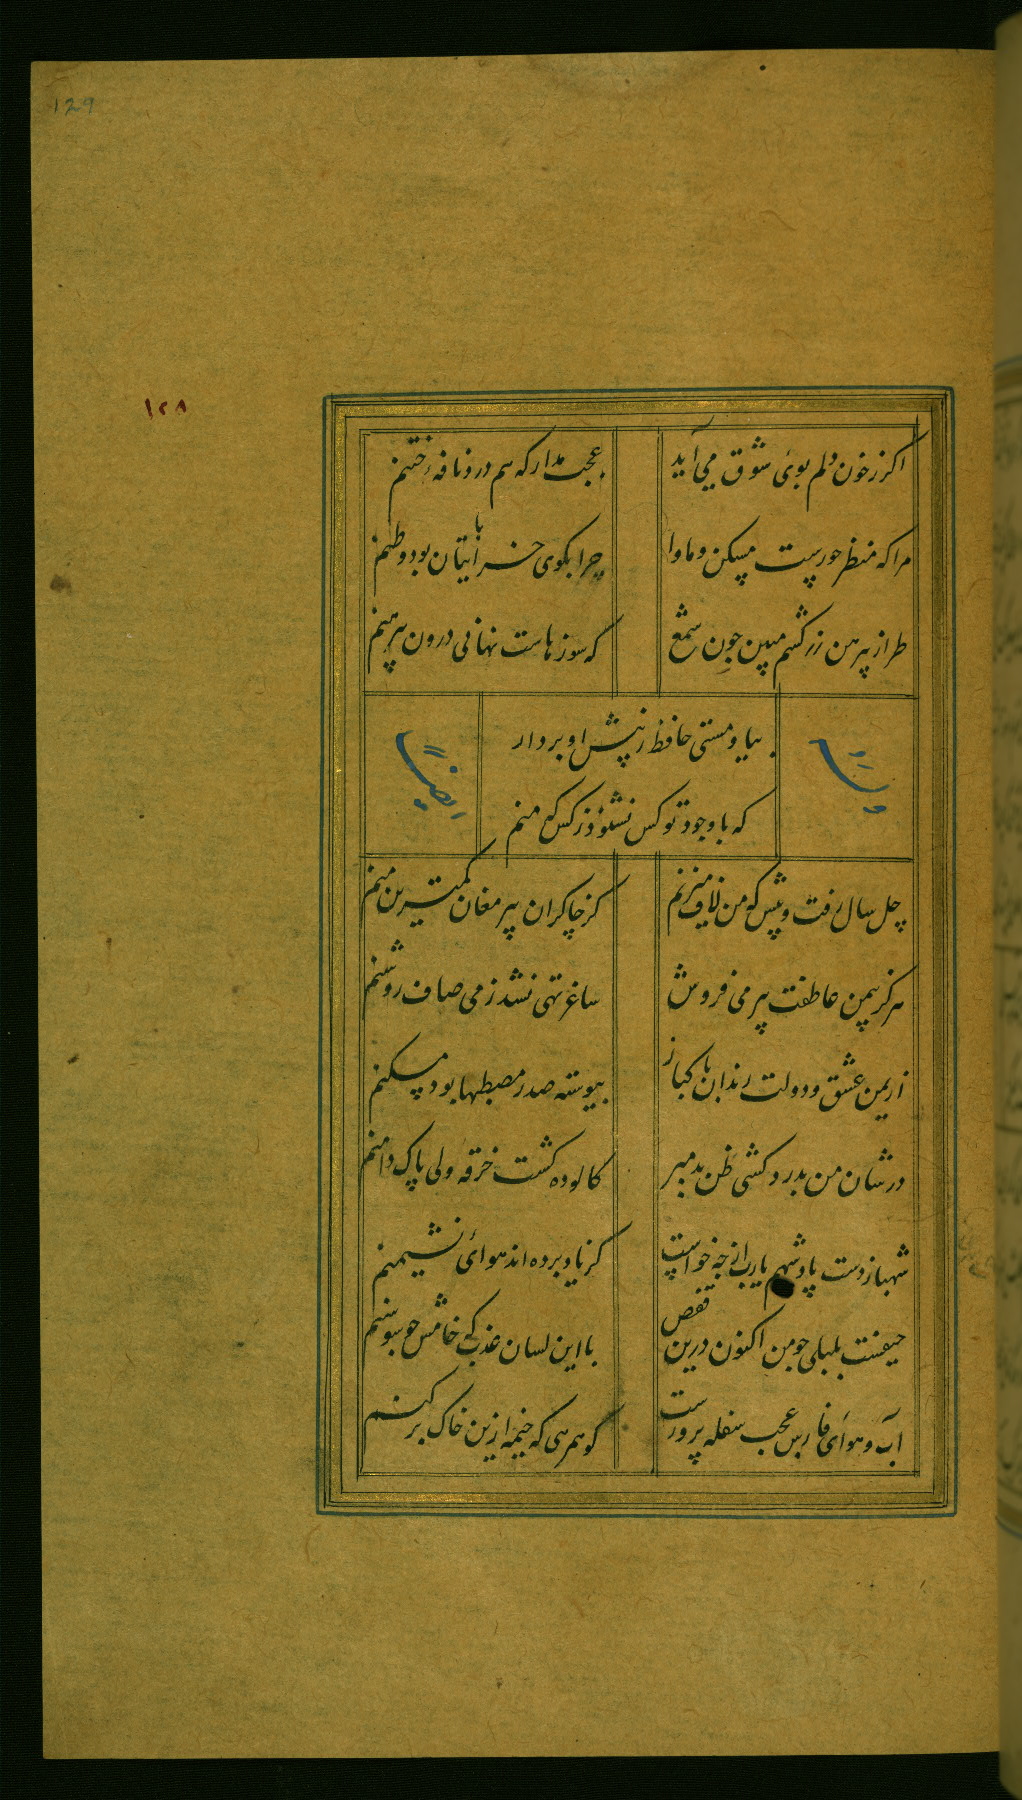 129
۱۲۸
اکر زخون دلم بوئ شوق می آید
عجب مدار که هم درد نافه ختنم
مرا که منظر حورست مسکن و ماوا
چرا بکوی خراباتیان بود وطنم
طراز پیرهن زرکشم مبین چون شمع
که سوزهاست نهانی درون پیرهنم
بیا و مستی حافظ ز پیش او بردار
که با وجود تو کس نشنود ز کس که منم
وله
ایضاً
چل سال رفت و پیش که من لاف میزنم
کز چاکران پیر مغان کمترین منم
هرکز بیمن عاطفت پیر می فروش
ساغر تهی نشد ز می صاف روشنم
از یمن عشق و دولت رندان پاکباز
پیوسته صدر مصطبها بود مسکنم
در شان من بدرد کشی ظن بد مبر
کالوده کشت خرقه ولی پاک دامنم
شهباز دست پادشهم یارب از چه خواست
کز یاد برده اند هوائ نشیمنم
حیفست بلبلی چو من اکنون درین قفص
با این لسان عذب که خامش چو سوسنم
آب و هوائ فارس عجب سفله پرورست
کو همرهی که خیمه ازین خاک برکنم